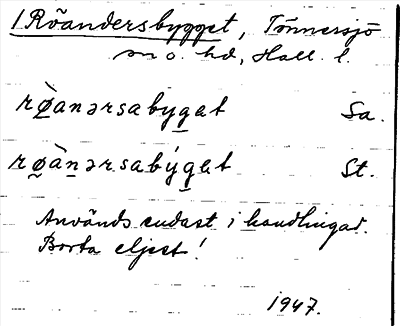 1 Röandersbygget, Tönnersjö
sn o. hd, Hall. l.
rø̀anərsabygat Sa.
rø̀ànərsabýgat St.
Används endast i handlingar.
Borta eljest!
1947.